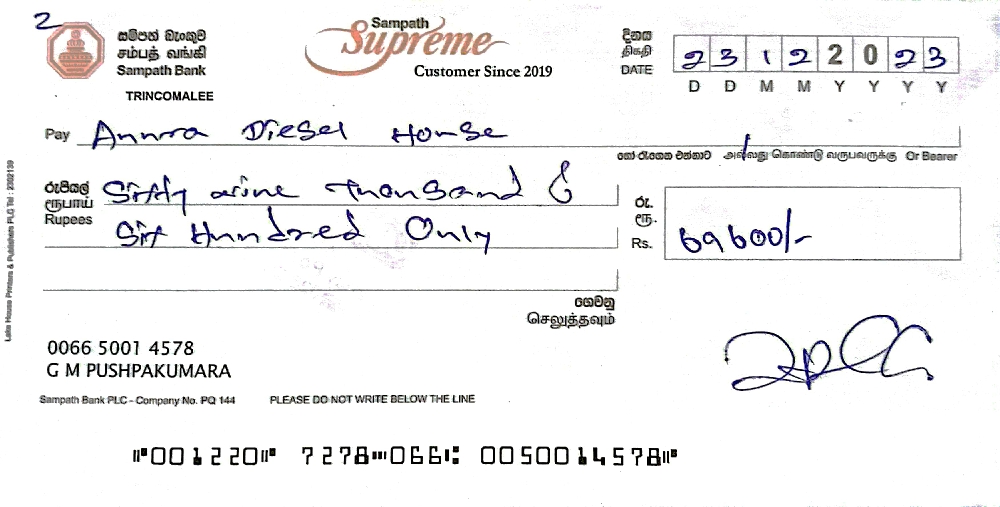 2
සම්පත් බැංකුව
சம்பத் வங்கி
Sampath Bank
TRINCOMALEE
Sampath
Supreme
Customer Since 2019
දිනය
திகதி
DATE
2 3 1 2 2 0 2 3
D D M M Y Y Y Y
Pay Annra Diesel House
හෝ රැගෙන එන්නාට அல்லது கொண்டு வருபவருக்கு Or Bearer
රුපියල්
ரூபாய்
Rupees
Sixty nine thousand &
Six Hundred Only
රු.
ரூ.
Rs. 69600/-
ගෙවනු
செலுத்தவும்
0066 5001 4578
G M PUSHPAKUMARA
Sampath Bank PLC - Company No. PQ 144 PLEASE DO NOT WRITE BELOW THE LINE
⑈001220⑈ 7278⑉066⑆ 0050014578⑈
Lake House Printers & Publishers PLC Tel : 2302139